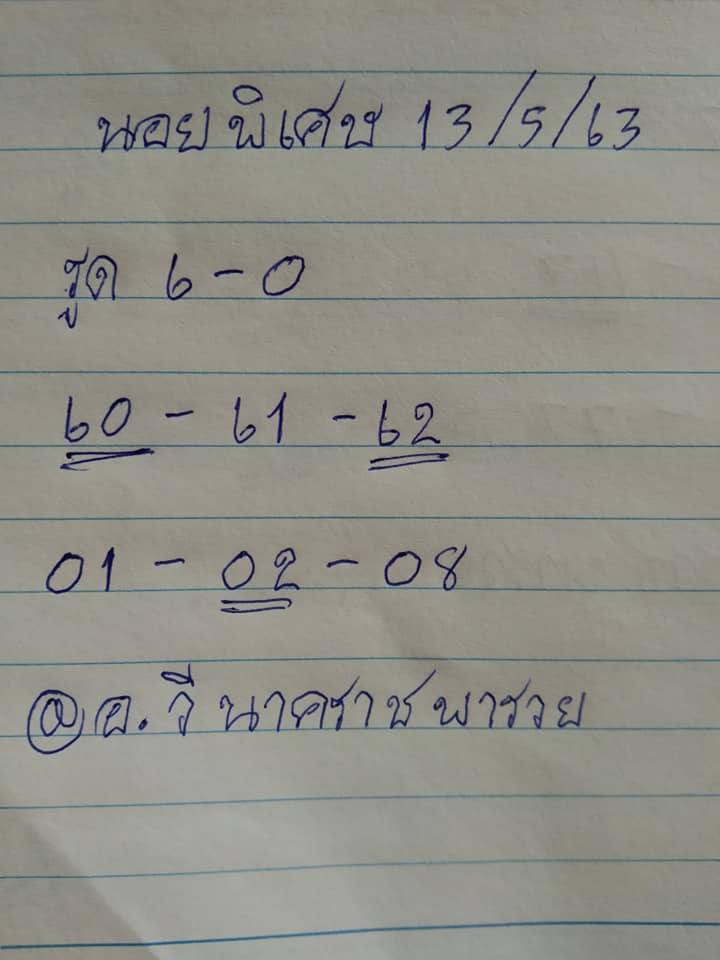 นอยพิเศษ 13/5/63
รูด 6-0
60 - 61 - 62
01 - 02 - 08
@อ.วี นาคราชพารวย